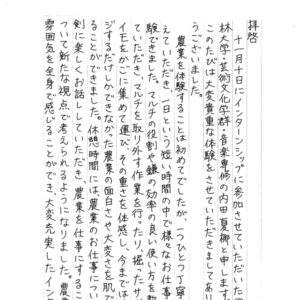 拝啓
十一月十日にインターンシップに参加させていただいた桜
林大学芸術文化学群 音楽専修の内田夏椰と申します
このたびは大変貴重な体験をさせていただきましてあ
うございました。
農業を体験することは初めてでしたが、一つひとつ丁寧
えていただき、一日という短い時間の中で様々なお仕事
験できました。マルチの役割や鎌の効率の良い使い方を教
ていただき、マルチを取り外す作業を行ったり、掘ったサ
イモをかごに集めて運び、その重さを体感し、今までは
ジするだけしかできなかった農業の面白さや大変さを肌で
ることができました。休憩時間には、農業のお仕事につい
剣に楽しくお話ししていただき、農業を仕事にするこ
ついて新たな視点で考えられるようになりました。農
雰囲気を全身で感じることができ、大変充実したイン